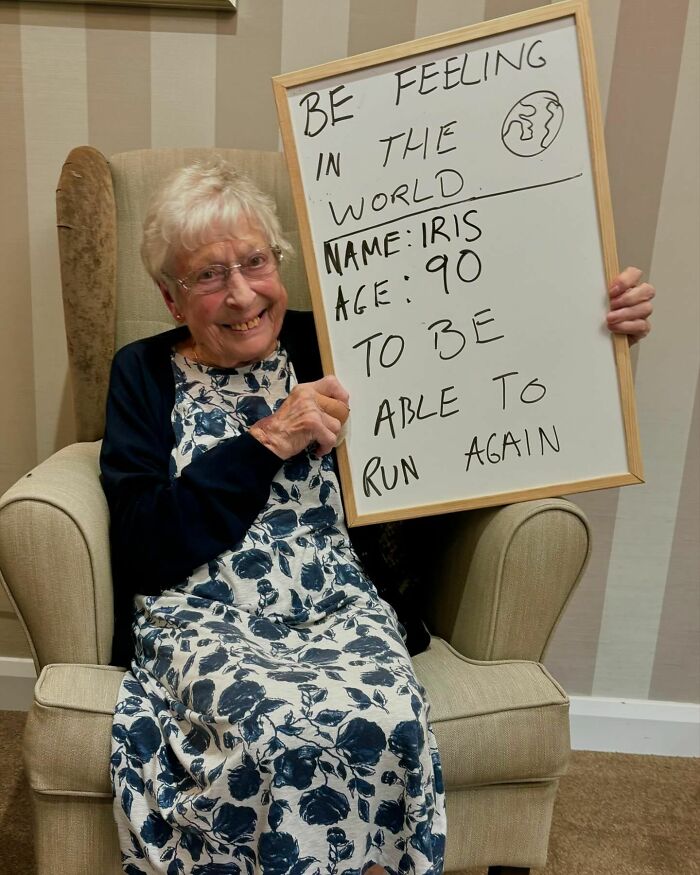 BE FEELING
IN THE
WORLD
NAME: IRIS
AGE: 90
TO BE
ABLE TO
RUN AGAIN